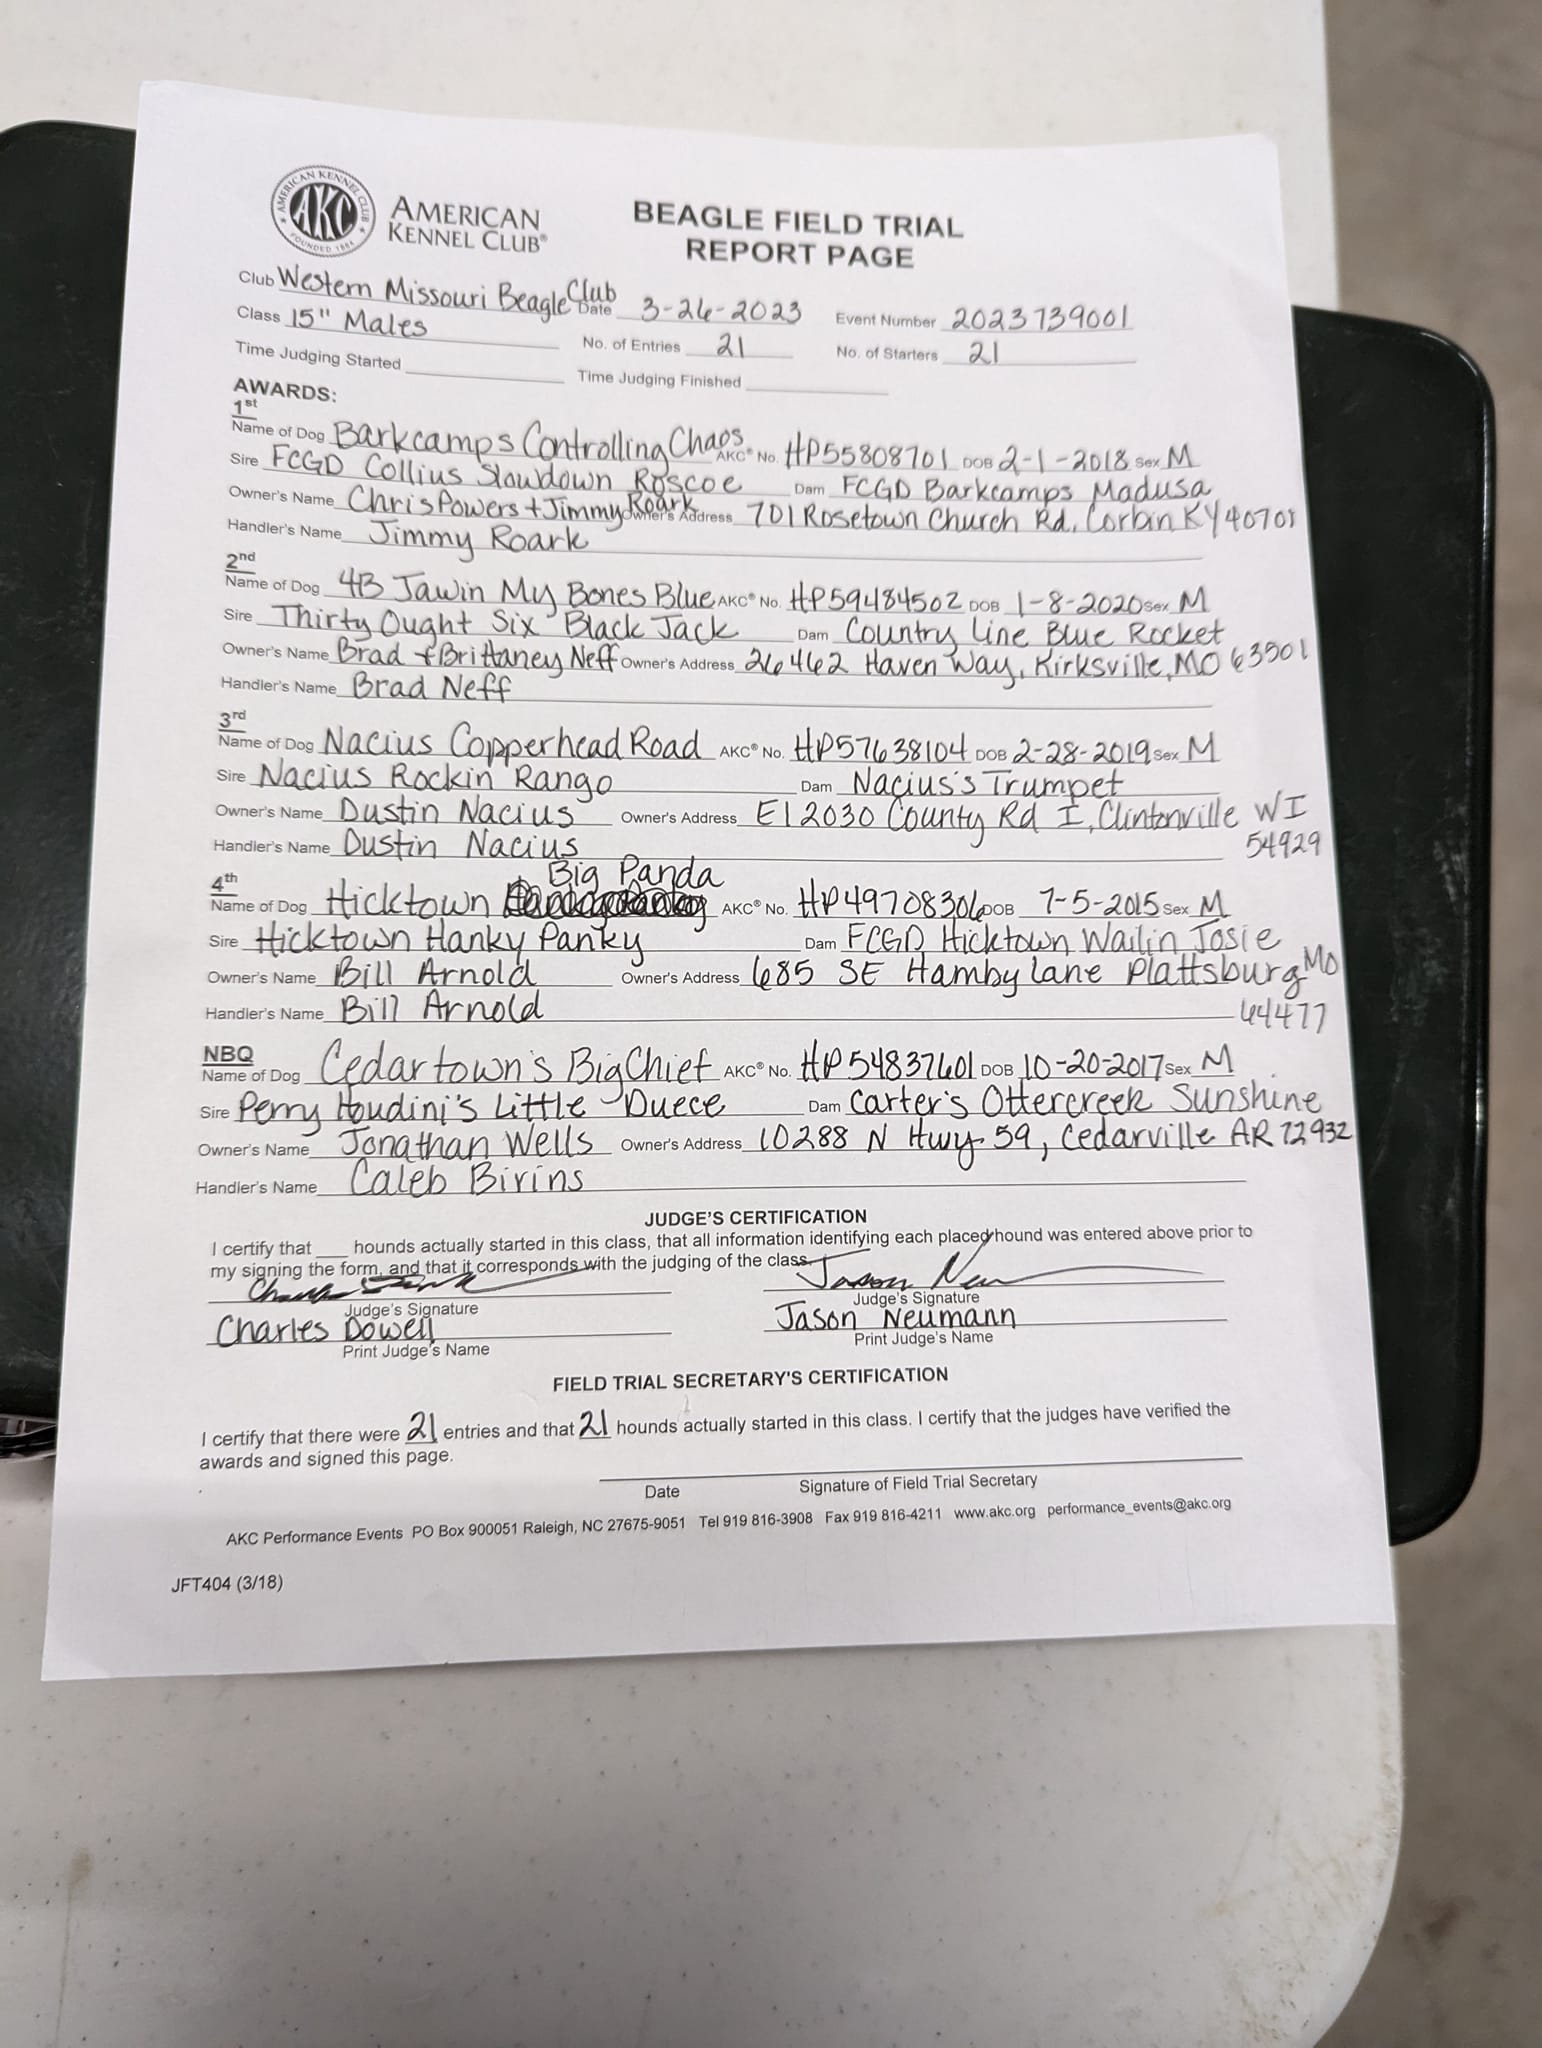 AMERICAN KENNEL CLUB
AKC
FOUNDED 1884
AMERICAN
KENNEL CLUB®
BEAGLE FIELD TRIAL
REPORT PAGE
Club Western Missouri Beagle Club Date 3-26-2023 Event Number 2023739001
Class 15" Males No. of Entries 21 No. of Starters 21
Time Judging Started Time Judging Finished
AWARDS:
1st
Name of Dog Barkcamps Controlling Chaos AKC® No. HP55808701 DOB 2-1-2018 Sex M
Sire FCGD Collius Slowdown Roscoe Dam FCGD Barkcamps Madusa
Owner's Name Chris Powers + Jimmy Roark Owner's Address 701 Rosetown Church Rd, Corbin KY 40701
Handler's Name Jimmy Roark
2nd
Name of Dog 4B Jawin My Bones Blue AKC® No. HP59484502 DOB 1-8-2020 Sex M
Sire Thirty Ought Six Black Jack Dam Country Line Blue Rocket
Owner's Name Brad + Brittaney Neff Owner's Address 26462 Haven Way, Kirksville, MO 63501
Handler's Name Brad Neff
3rd
Name of Dog Nacius Copperhead Road AKC® No. HP57638104 DOB 2-28-2019 Sex M
Sire Nacius Rockin Rango Dam Nacius's Trumpet
Owner's Name Dustin Nacius Owner's Address E12030 County Rd I, Clintonville WI
Handler's Name Dustin Nacius 54929
4th Big Panda
Name of Dog Hicktown AKC® No. HP49708306 DOB 7-5-2015 Sex M
Sire Hicktown Hanky Panky Dam FCGD Hicktown Wailin Josie
Owner's Name Bill Arnold Owner's Address 685 SE Hamby Lane Plattsburg MO
Handler's Name Bill Arnold 64477
NBQ
Name of Dog Cedartown's Big Chief AKC® No. HP54837601 DOB 10-20-2017 Sex M
Sire Perry Houdini's Little Duece Dam Carter's Ottercreek Sunshine
Owner's Name Jonathan Wells Owner's Address 10288 N Hwy 59, Cedarville AR 72932
Handler's Name Caleb Birins
JUDGE'S CERTIFICATION
I certify that ___ hounds actually started in this class, that all information identifying each placed hound was entered above prior to
my signing the form, and that it corresponds with the judging of the class.
Jason
Judge's Signature Judge's Signature
Charles Dowell Jason Neumann
Print Judge's Name Print Judge's Name
FIELD TRIAL SECRETARY'S CERTIFICATION
I certify that there were 21 entries and that 21 hounds actually started in this class. I certify that the judges have verified the
awards and signed this page.
Date Signature of Field Trial Secretary
AKC Performance Events PO Box 900051 Raleigh, NC 27675-9051 Tel 919 816-3908 Fax 919 816-4211 www.akc.org performance_events@akc.org
JFT404 (3/18)